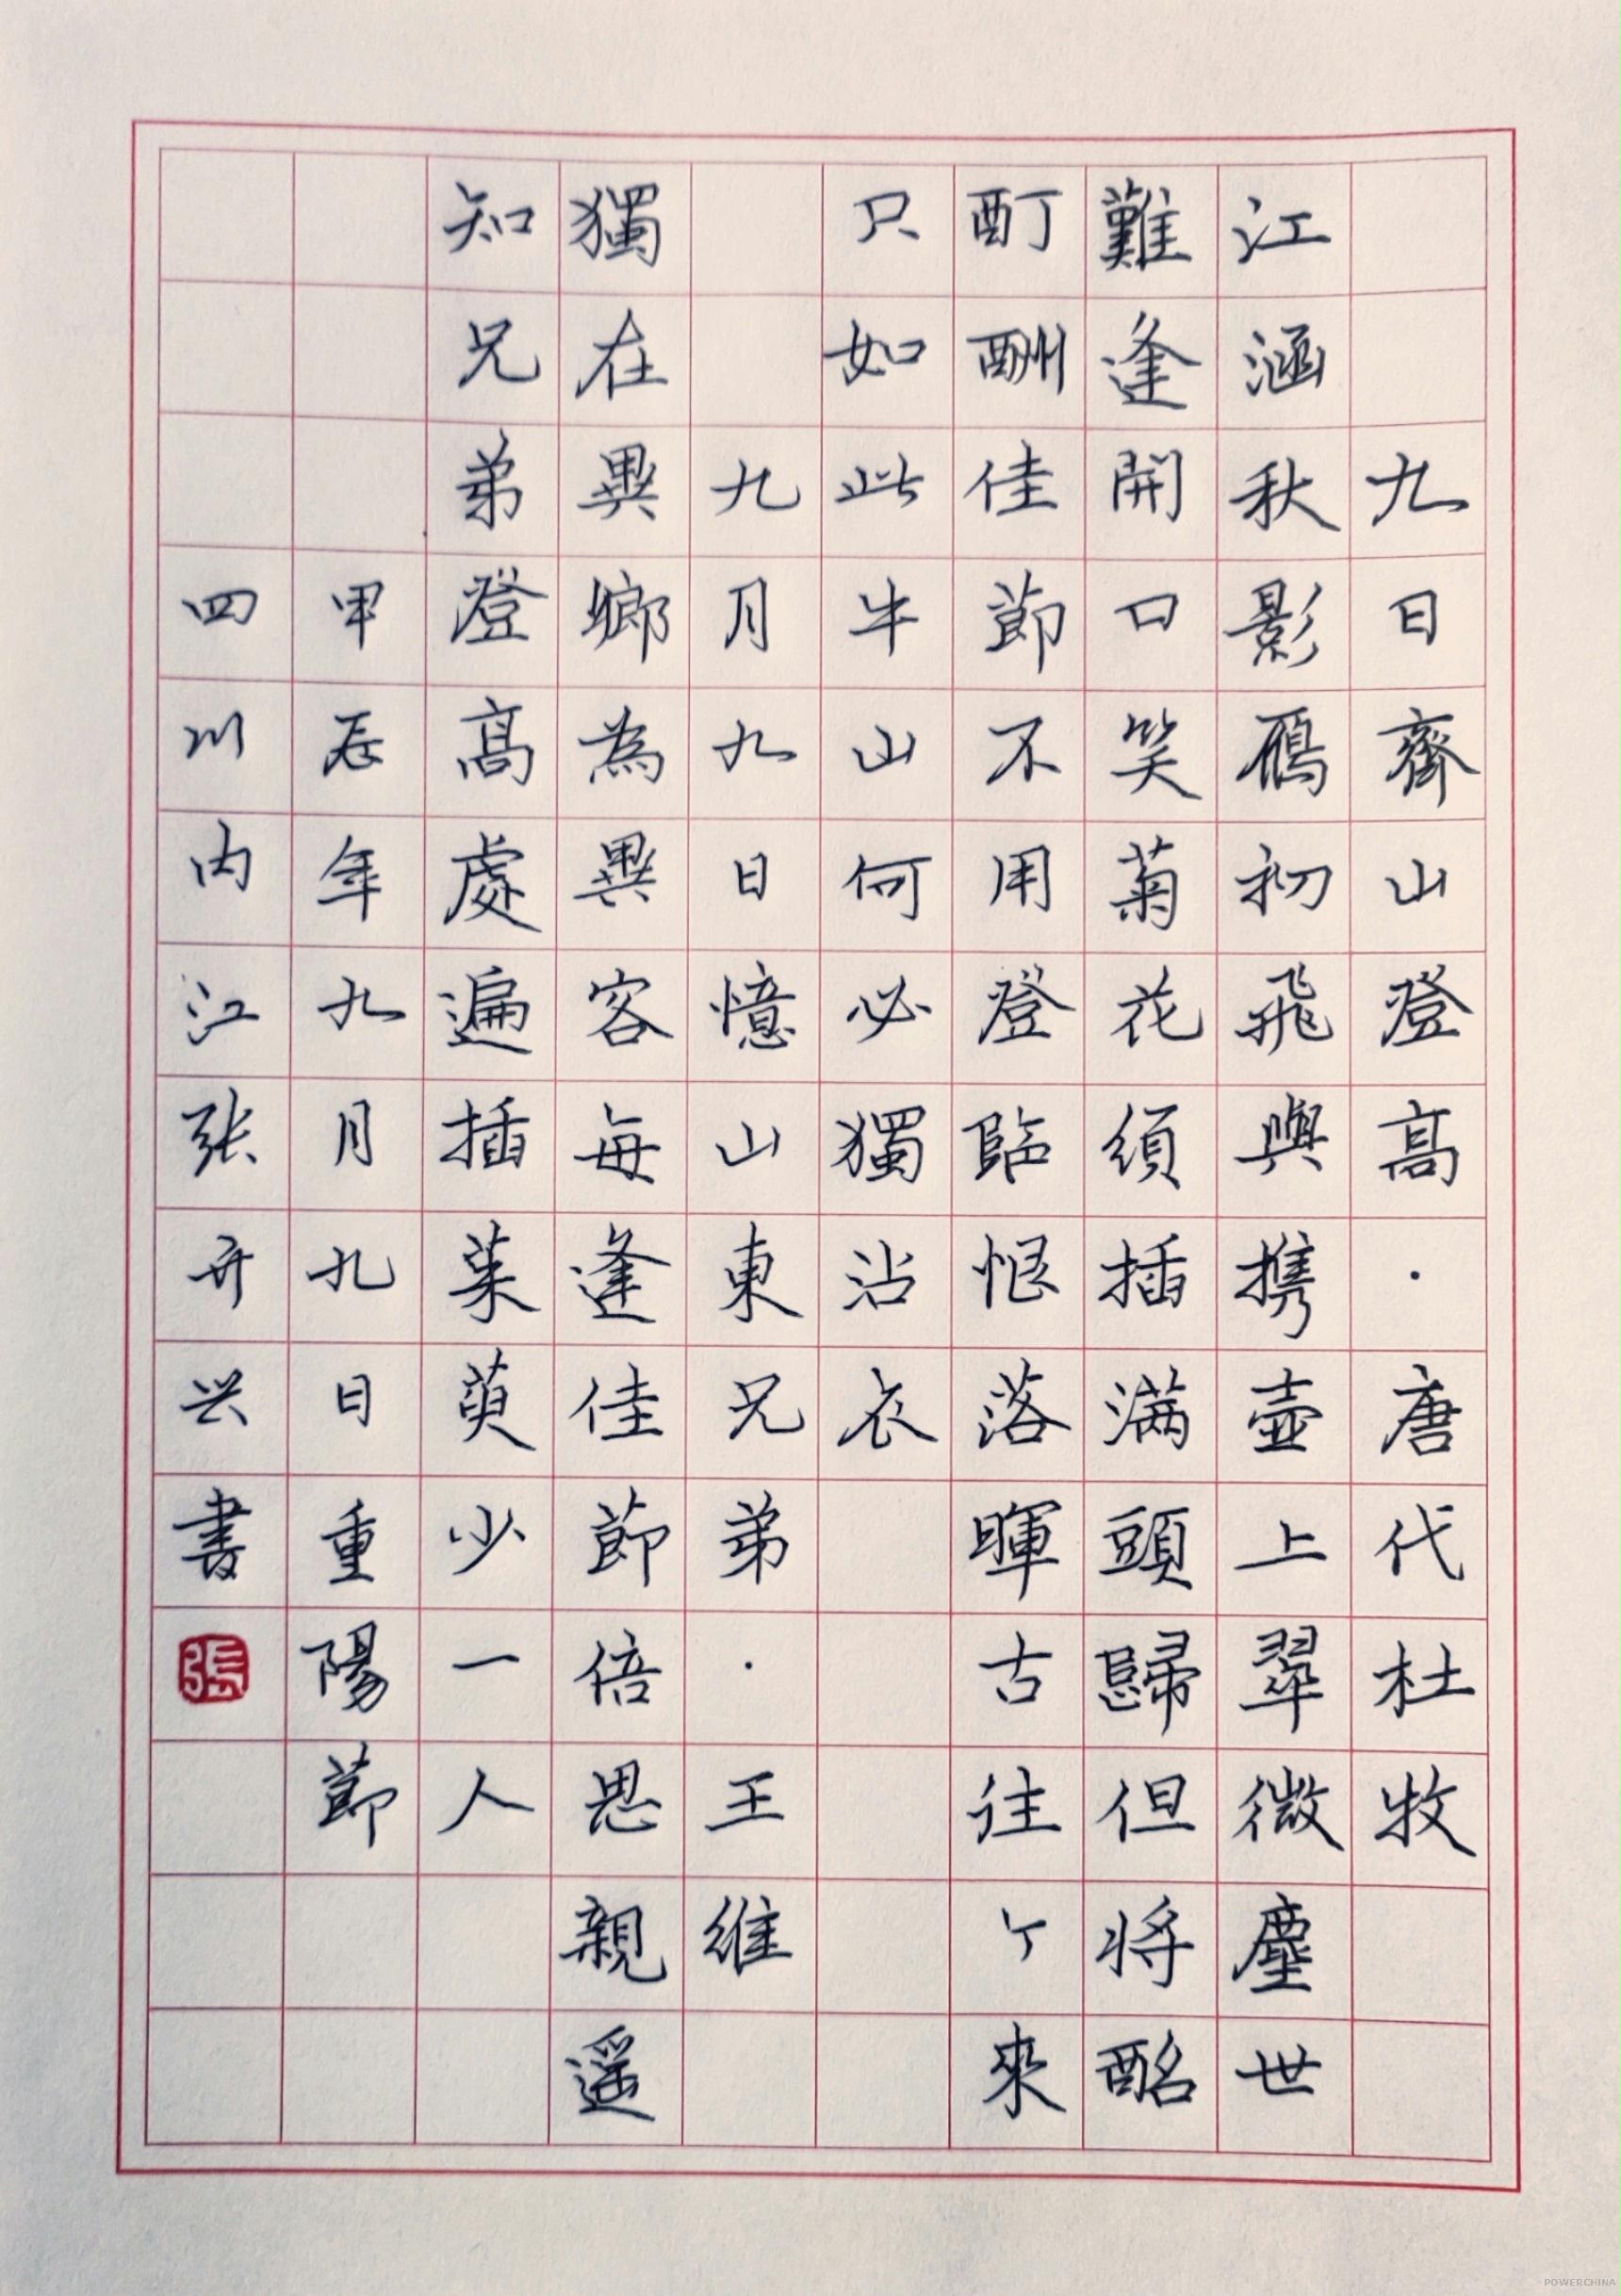 九日齊山登高·唐代杜牧
江涵秋影鴈初飛與攜壺上翠微塵世
難逢開口笑菊花須插滿頭歸但將酩
酊酬佳節不用登臨恨落暉古往今來
只如此牛山何必獨沾衣
九月九日憶山東兄弟·王維
獨在異鄉為異客每逢佳節倍思親遥
知兄弟登高處遍插茱萸少一人
甲辰年九月九日重陽節
四川内江张开兴書
張
POWERCHINA